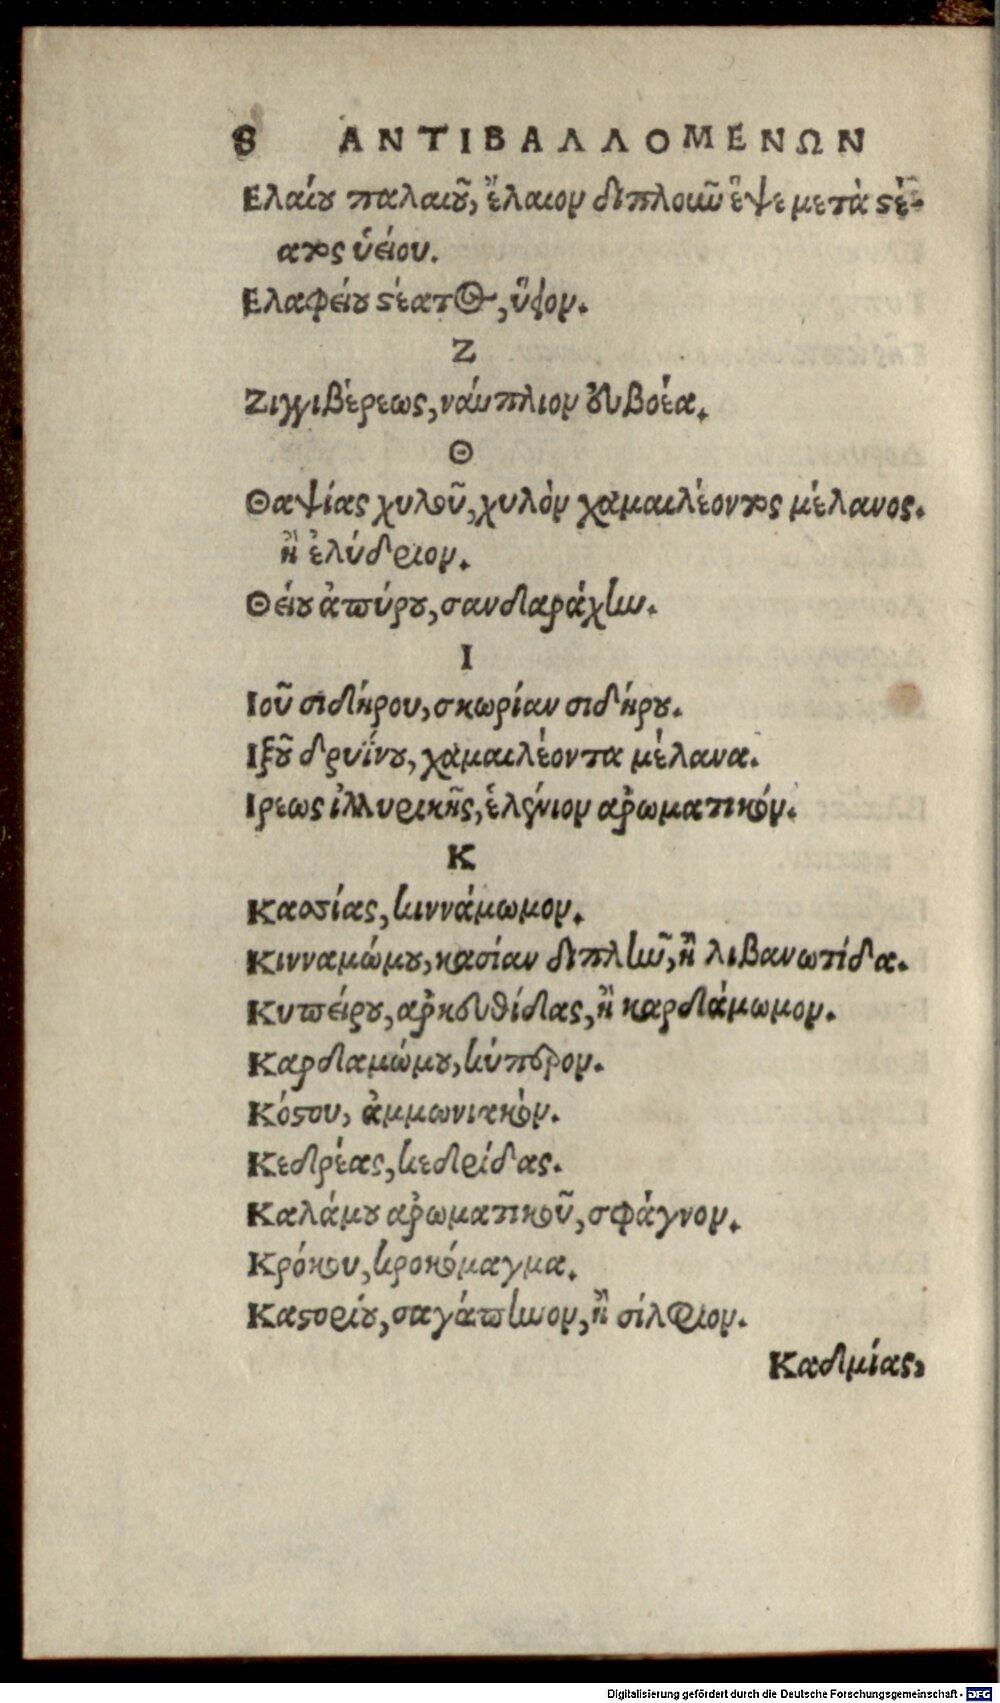 8 ΑΝΤΙΒΑΛΛΟΜΕΝΩΝ
Ελαίου παλαιοῦ, ἔλαιον διπλοῦν ἕψε μετὰ στέ-
ατος ὑείου.
Ελαφείου στέατος, ὕσσον.
Ζ
Ζιγγιβέρεως, ναύπλιον εὐβοέα.
Θ
Θαψίας χυλοῦ, χυλὸν χαμαιλέοντος μέλανος.
ἢ ἐλύδριον.
Θείου ἀπύρου, σανδαράχην.
Ι
Ιοῦ σιδήρου, σκωρίαν σιδήρου.
Ιξοῦ δρυΐνου, χαμαιλέοντα μέλανα.
Ιρεως ἰλλυρικῆς, ἑλένιον ἀρωματικόν.
Κ
Κασσίας, κιννάμωμον.
Κινναμώμου, κασίαν διπλῆν, ἢ λιβανωτίδα.
Κυπείρου, ἀρκευθίδας, ἢ καρδάμωμον.
Καρδαμώμου, κύπερον.
Κόστου, ἀμμωνιακόν.
Κεδρέας, κεδρίδας.
Καλάμου ἀρωματικοῦ, σφάγνον.
Κρόκου, κροκόμαγμα.
Καστορίου, σαγάπηνον, ἢ σίλφιον.
Καδμίας,
Digitalisierung gefördert durch die Deutsche Forschungsgemeinschaft - DFG